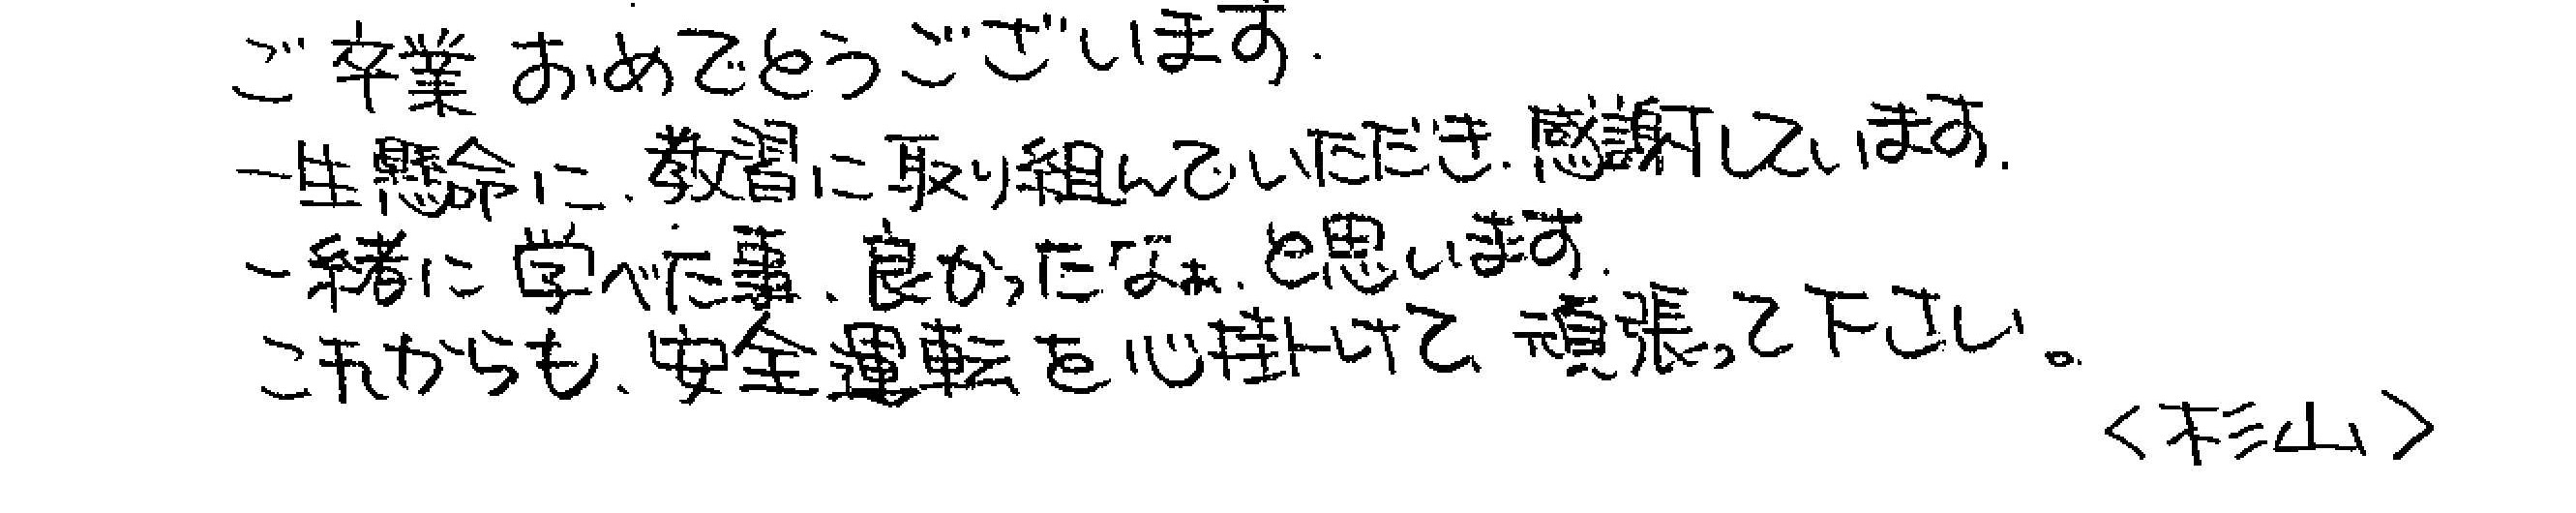 ご卒業おめでとうございます.
一生懸命に、教習に取り組んでいただき、感謝しています.
一緒に学べた事、良かったなぁ、と思います.
これからも、安全運転を心掛けて、頑張って下さい。
<杉山>